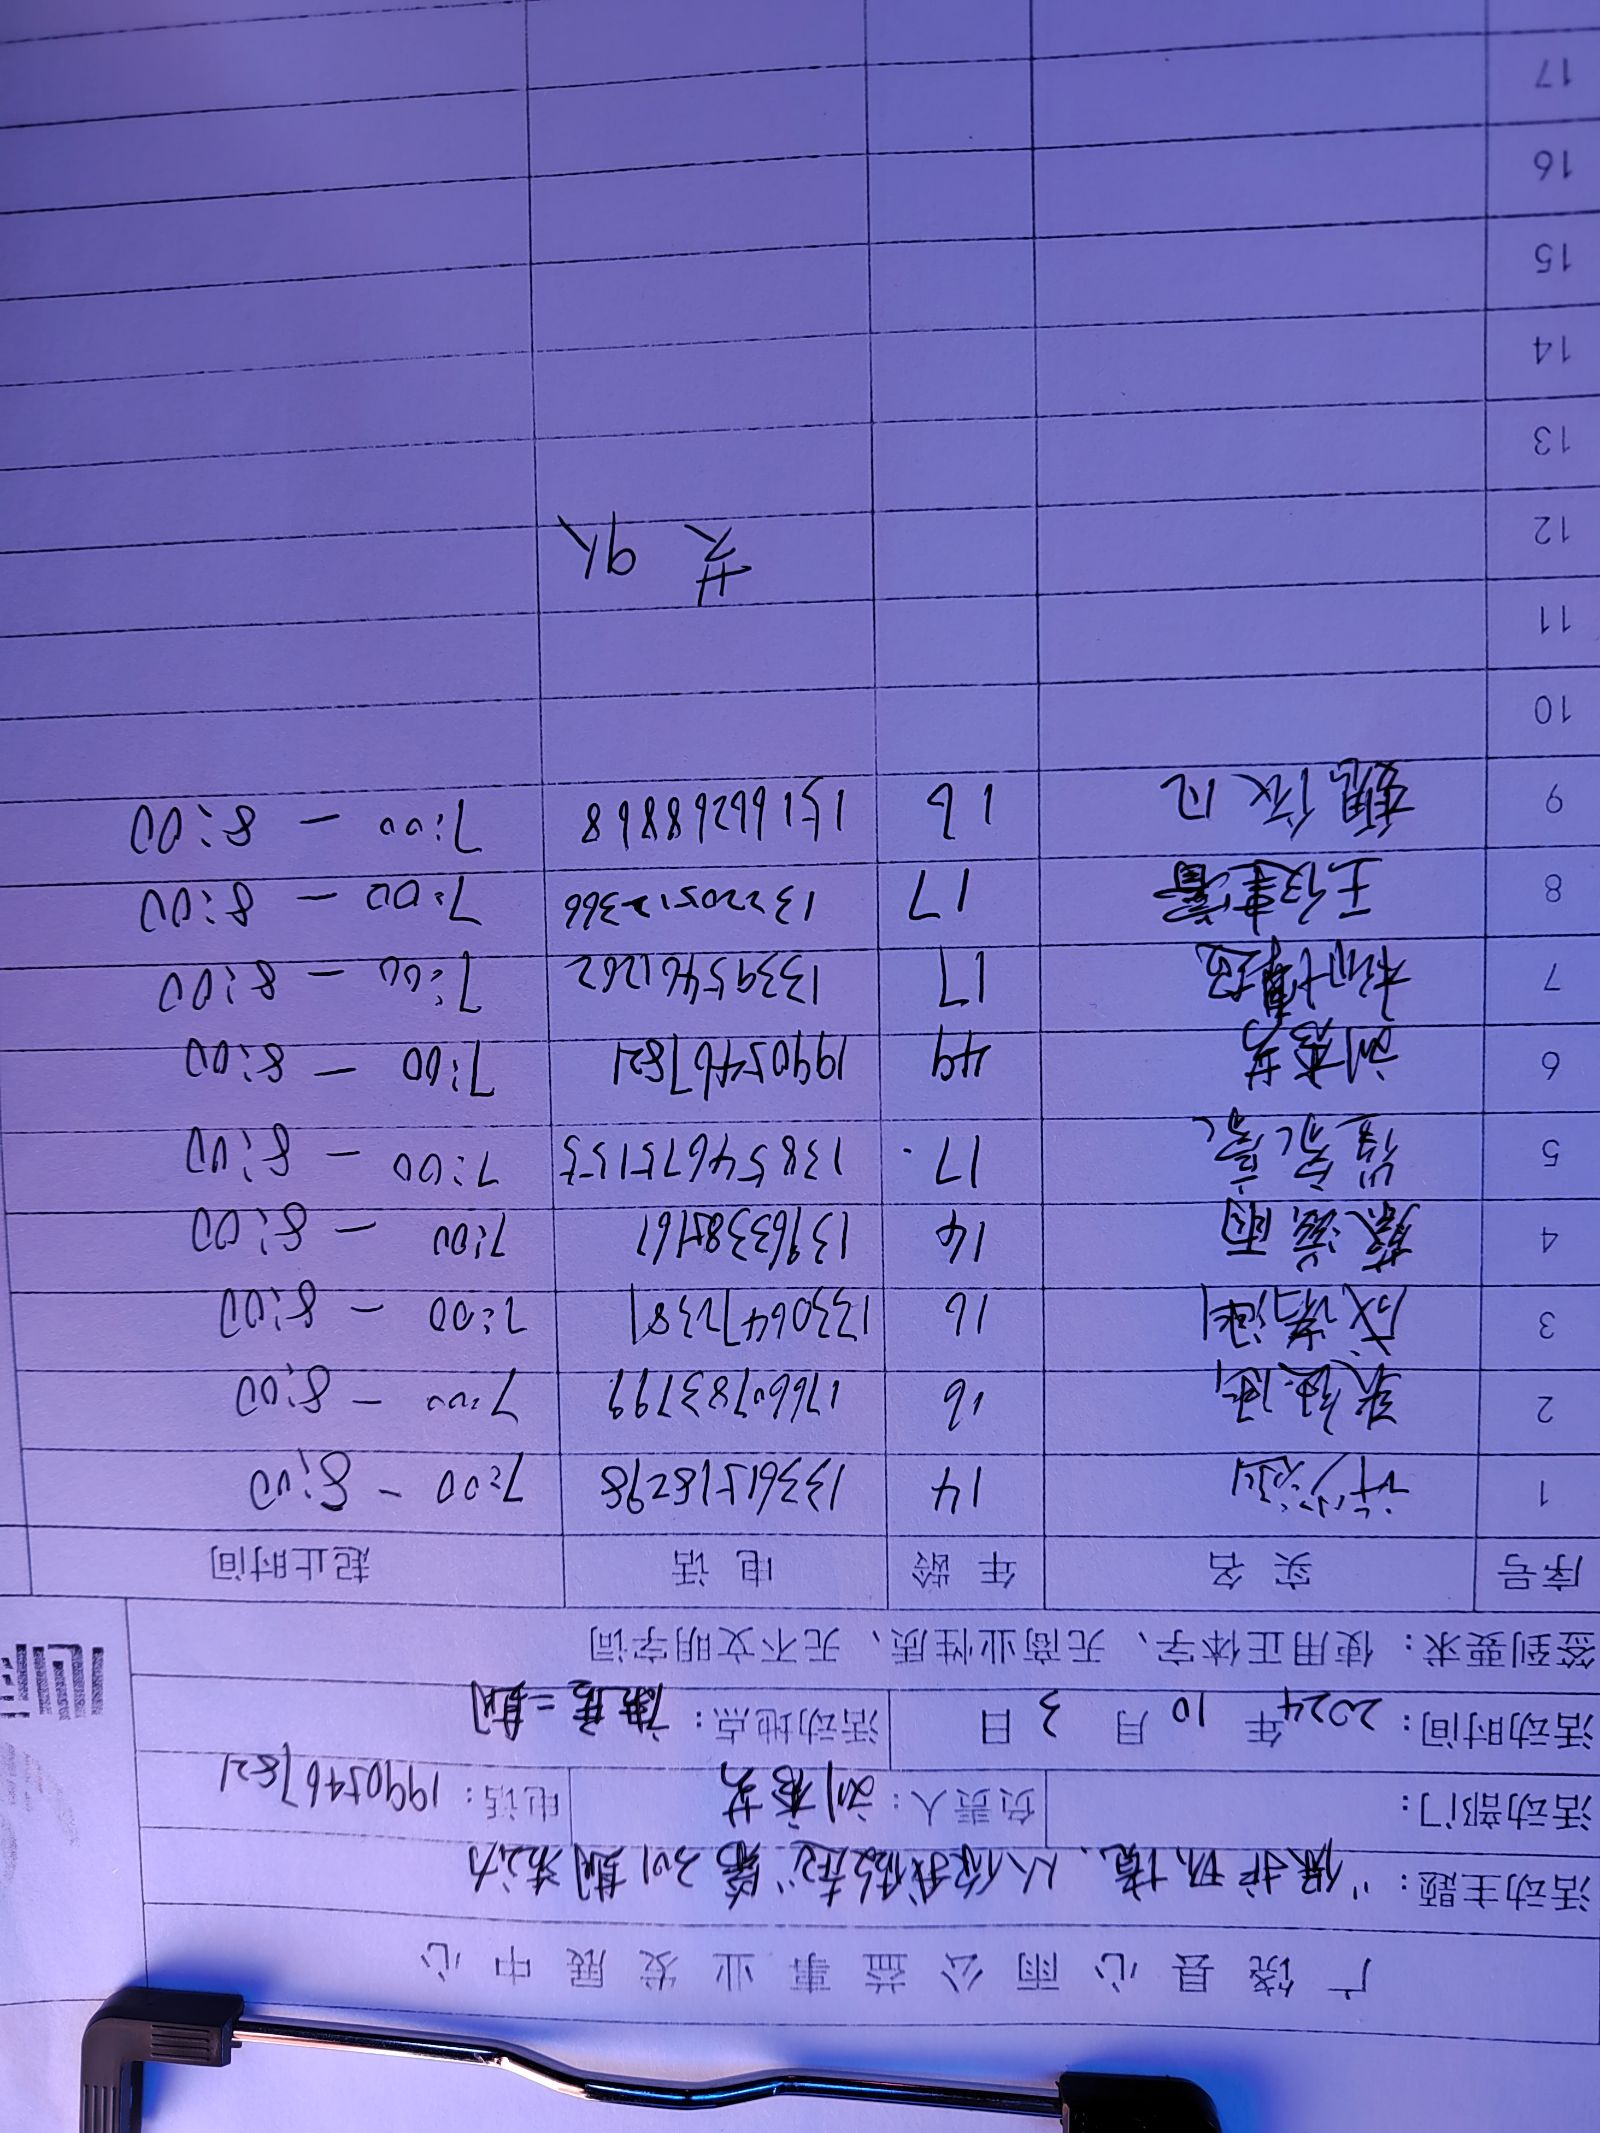 广饶县心雨公益事业发展中心
活动主题：“保护环境、从你我做起”第201期活动
活动部门： 负责人：刘秀芳 电话：19905467821
活动时间：2024年10月3日 活动地点：二期
签到要求：使用正体字、无商业性质、无不文明字词
序号 实名 年龄 电话 起止时间
1 14 13361518298 7:00 - 8:00
2 16 17660783799 7:00 - 8:00
3 16 13306472381 7:00 - 8:00
4 雨 14 13963385767 7:00 - 8:00
5 17 13854675155 7:00 - 8:00
6 刘秀芳 49 19905467821 7:00 - 8:00
7 17 13395461262 7:00 - 8:00
8 王 17 13220512366 7:00 - 8:00
9 依凡 16 15166268868 7:00 - 8:00
10
11
12 共9人
13
14
15
16
17